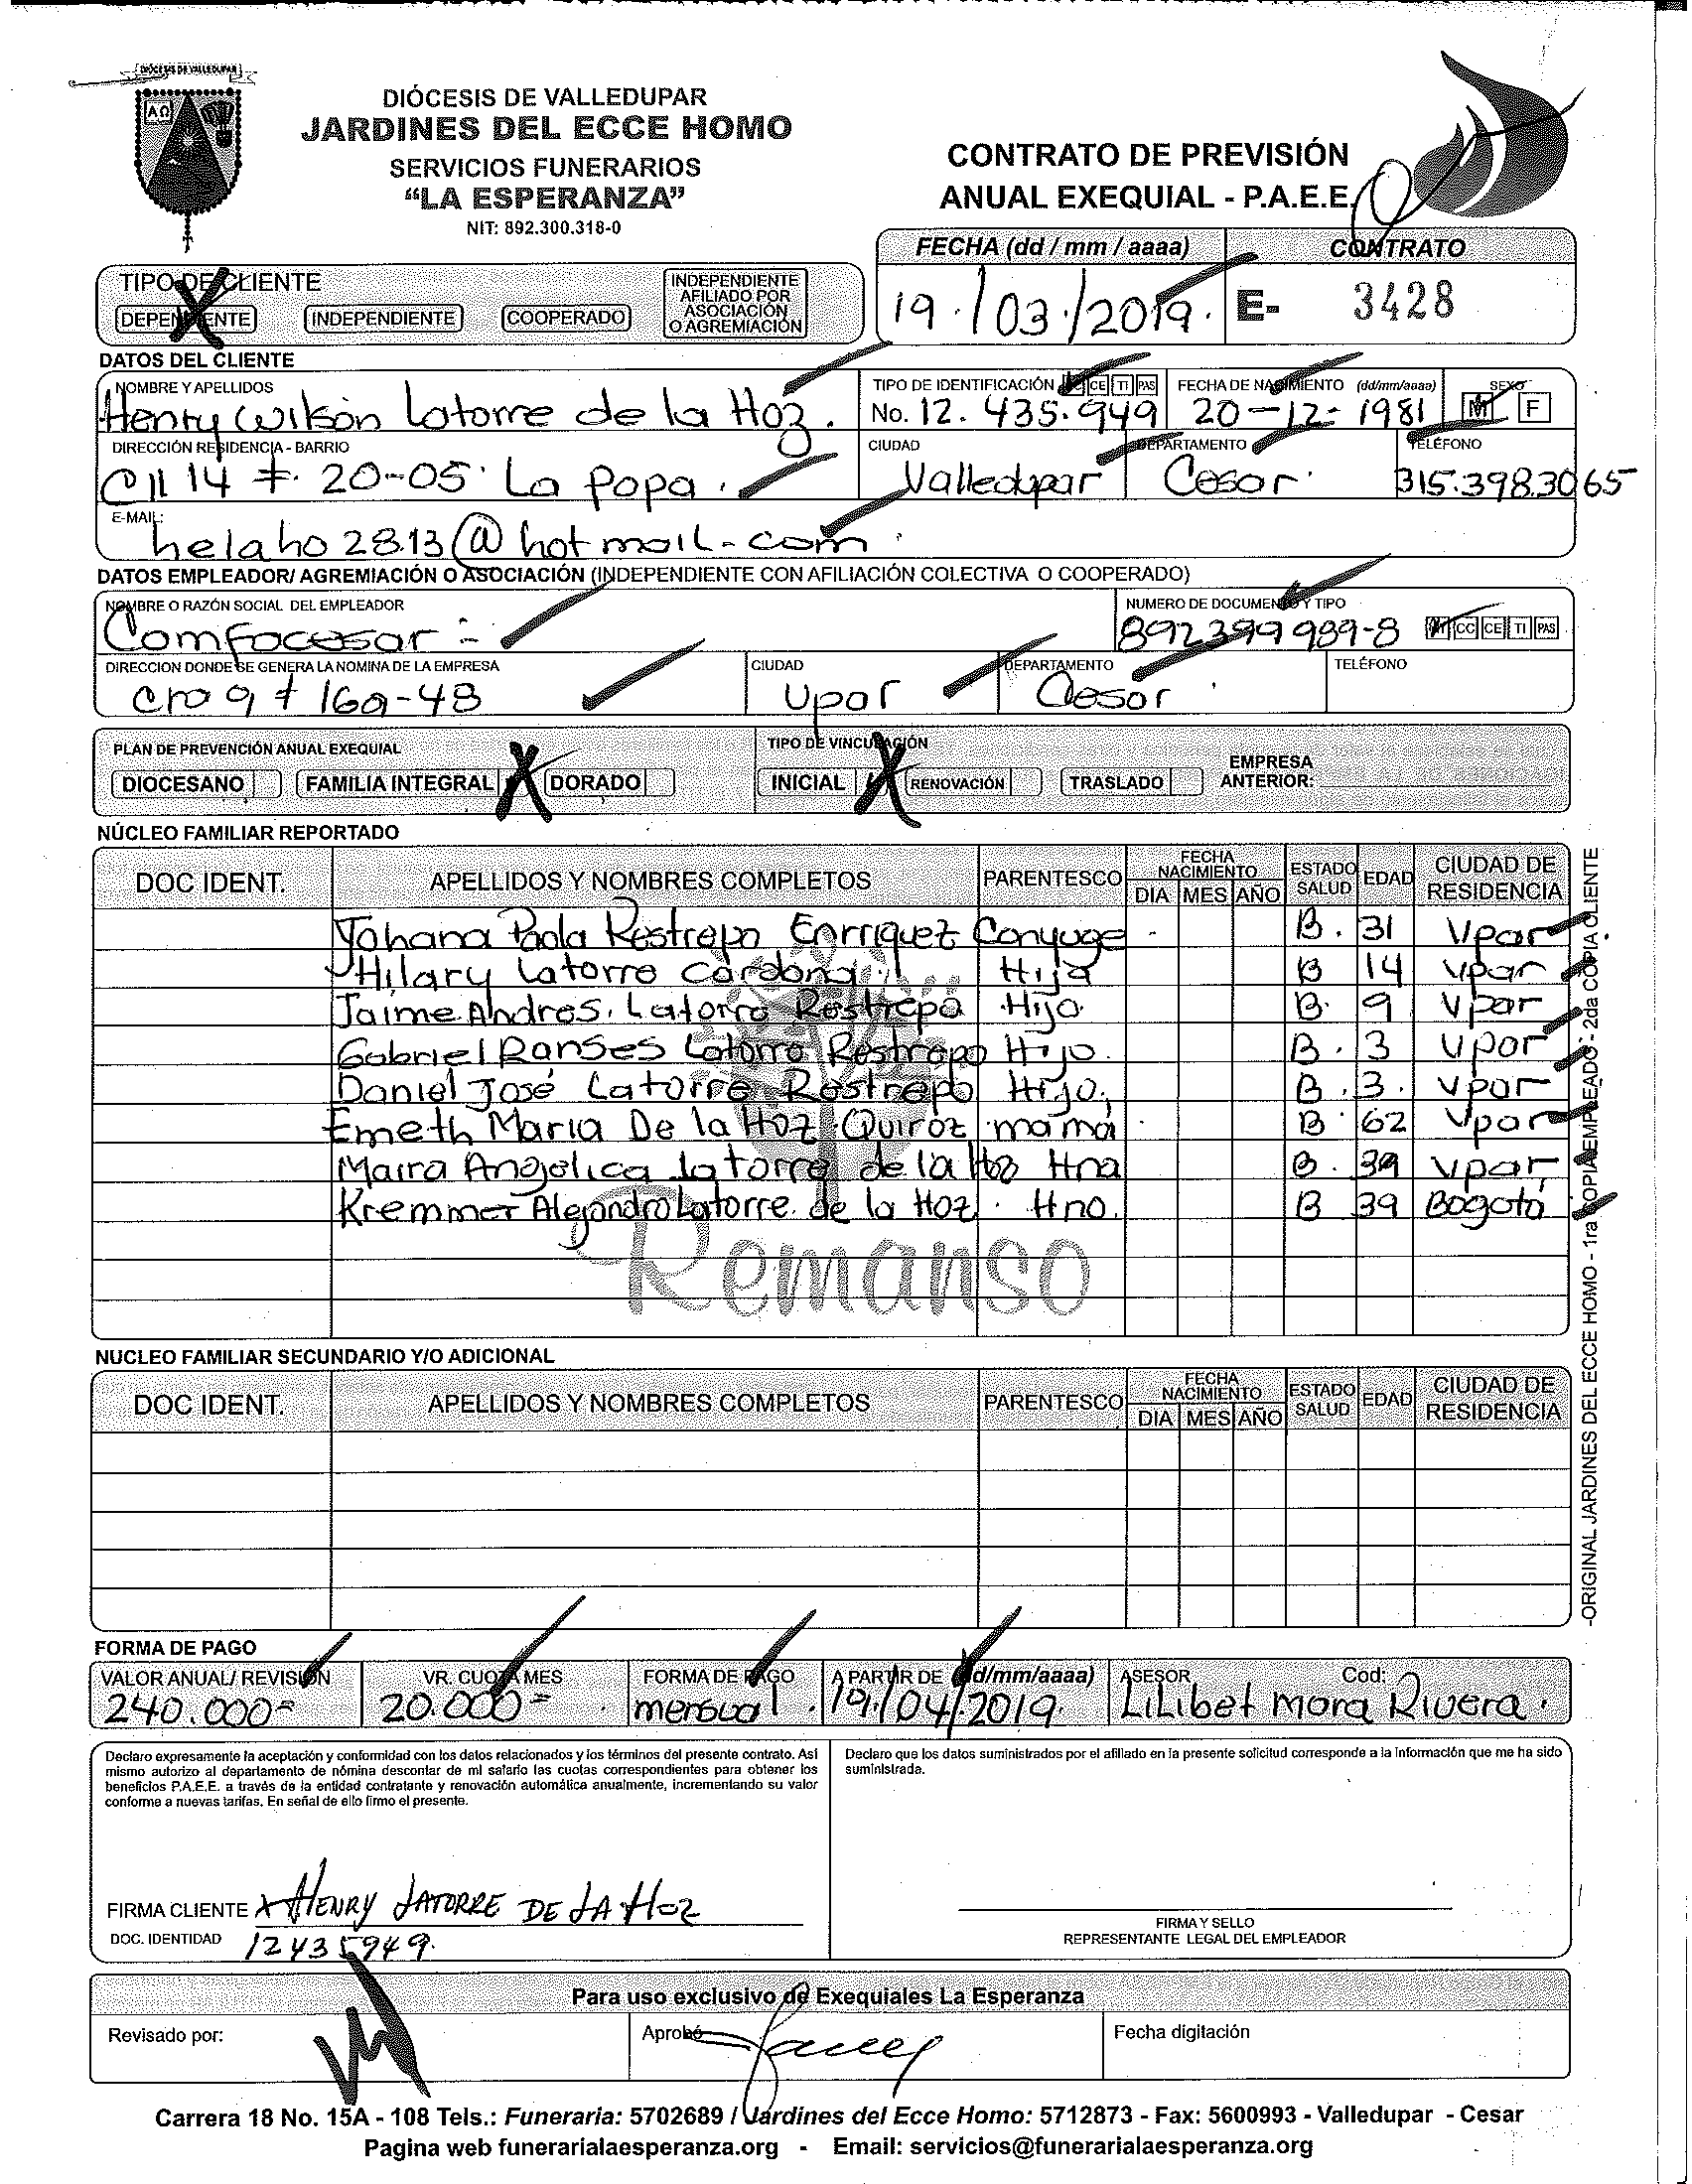 DIÓCESIS DE VALLEDUPAR
DIÓCESIS DE VALLEDUPAR
JARDINES DEL ECCE HOMO
SERVICIOS FUNERARIOS
“LA ESPERANZA”
NIT: 892.300.318-0
CONTRATO DE PREVISIÓN
ANUAL EXEQUIAL - P.A.E.E.
FECHA (dd / mm / aaaa) CONTRATO
19/03/2019. E- 3428
TIPO DE CLIENTE
DEPENDIENTE INDEPENDIENTE COOPERADO INDEPENDIENTE AFILIADO POR ASOCIACIÓN O AGREMIACIÓN
DATOS DEL CLIENTE
NOMBRE Y APELLIDOS TIPO DE IDENTIFICACIÓN CE TI PAS FECHA DE NACIMIENTO (dd/mm/aaaa) SEXO
Henry Wilson Latorre de la Hoz. No. 12.435.949 20-12-1981 M F
DIRECCIÓN RESIDENCIA - BARRIO CIUDAD DEPARTAMENTO TELÉFONO
Cll 14 #. 20-05 La Popa. Valledupar Cesar. 315.398.3065
E-MAIL:
helaho2813@hotmail.com
DATOS EMPLEADOR/ AGREMIACIÓN O ASOCIACIÓN (INDEPENDIENTE CON AFILIACIÓN COLECTIVA O COOPERADO)
NOMBRE O RAZÓN SOCIAL DEL EMPLEADOR NUMERO DE DOCUMENTO Y TIPO
Comfacesar 892399989-8 CC CE TI PAS
DIRECCION DONDE SE GENERA LA NOMINA DE LA EMPRESA CIUDAD DEPARTAMENTO TELÉFONO
Cra 9 # 16a-48 Upar Cesar
PLAN DE PREVENCIÓN ANUAL EXEQUIAL TIPO DE VINCULACIÓN
DIOCESANO FAMILIA INTEGRAL X DORADO INICIAL X RENOVACIÓN TRASLADO EMPRESA ANTERIOR:
NÚCLEO FAMILIAR REPORTADO
DOC IDENT. APELLIDOS Y NOMBRES COMPLETOS PARENTESCO FECHA NACIMIENTO DIA MES AÑO ESTADO SALUD EDAD CIUDAD DE RESIDENCIA
Yohana Paola Restrepo Enrriquez Conyuge B. 31 Vpar
Hilary Latorre Cardona Hija B 14 Vpar
Jaime Andres. Latorre Restrepo Hijo. B. 9 Vpar
Gabriel Ranses Latorre Restrepo Hijo. B. 3 Vpar
Daniel José Latorre Restrepo Hijo. B. 3. Vpar
Emeth Maria De la Hoz Quiroz mamá B 62 Vpar
Maira Angelica Latorre de la Hoz Hna B. 39 Vpar
Kremmer Alejandro Latorre de la Hoz. Hno. B 39 Bogotá
Remanso
NUCLEO FAMILIAR SECUNDARIO Y/O ADICIONAL
DOC IDENT. APELLIDOS Y NOMBRES COMPLETOS PARENTESCO FECHA NACIMIENTO DIA MES AÑO ESTADO SALUD EDAD CIUDAD DE RESIDENCIA
-ORIGINAL JARDINES DEL ECCE HOMO - 1ra COPIA EMPLEADO - 2da COPIA CLIENTE
FORMA DE PAGO
VALOR ANUAL/ REVISIÓN VR. CUOTA MES FORMA DE PAGO A PARTIR DE (dd/mm/aaaa) ASESOR Cod:
240.000= 20.000= mensual. 19/04/2019. Lilibet Mora Rivera.
Declaro expresamente la aceptación y conformidad con los datos relacionados y los términos del presente contrato. Así
mismo autorizo al departamento de nómina descontar de mi salario las cuotas correspondientes para obtener los
beneficios P.A.E.E. a través de la entidad contratante y renovación automática anualmente, incrementando su valor
conforme a nuevas tarifas. En señal de ello firmo el presente.
Declaro que los datos suministrados por el afiliado en la presente solicitud corresponde a la información que me ha sido
suministrada.
FIRMA CLIENTE X HENRY LATORRE DE LA HOZ
DOC. IDENTIDAD 12435949.
FIRMA Y SELLO
REPRESENTANTE LEGAL DEL EMPLEADOR
Para uso exclusivo de Exequiales La Esperanza
Revisado por: Aprobó Fecha digitación
Carrera 18 No. 15A - 108 Tels.: Funeraria: 5702689 / Jardines del Ecce Homo: 5712873 - Fax: 5600993 - Valledupar - Cesar
Pagina web funerarialaesperanza.org - Email: servicios@funerarialaesperanza.org